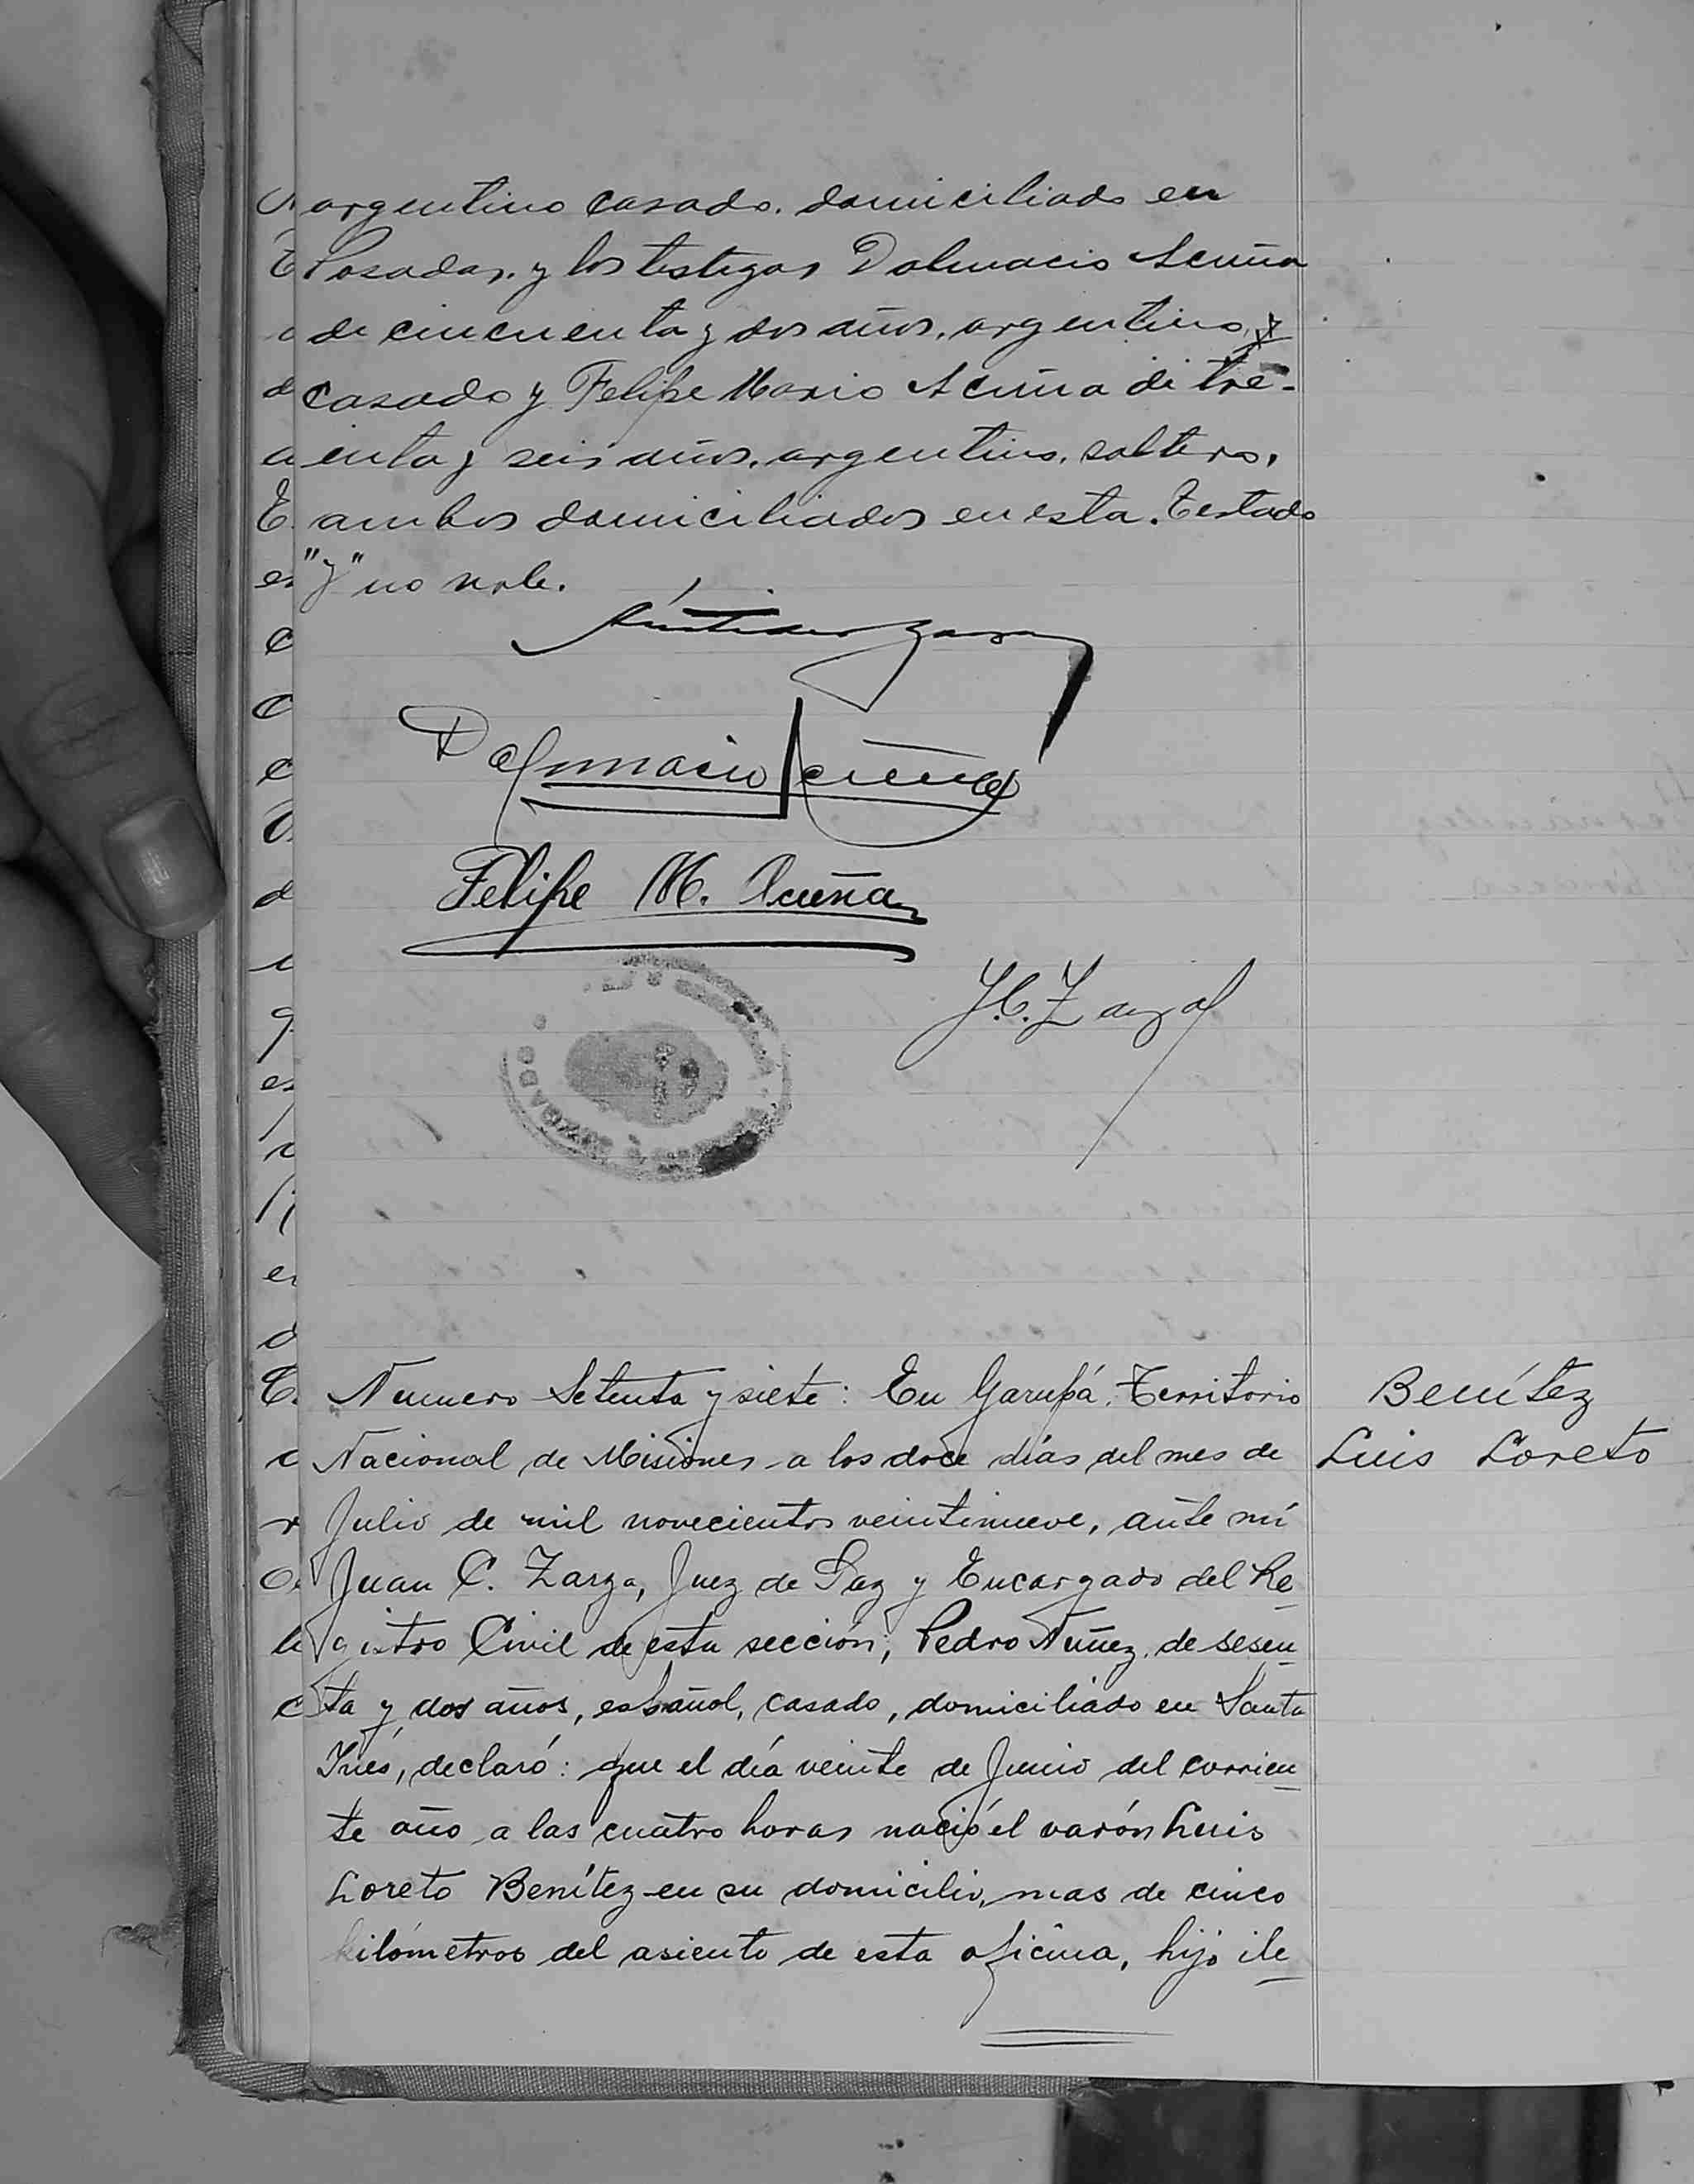 argentino casado. domiciliado en
Posadas. y los testigos Dalmacio Acuña
de cincuenta y dos años. argentino, y
casado y Felipe Mario Acuña de tre-
inta y seis años. argentino. soltero,
ambos domiciliados en esta. Testado
"y" no vale.
Dalmacio Acuña
Felipe M. Acuña
J. C. Zarza
Numero Setenta y siete: En Garupá. Territorio
Nacional de Misiones a los doce días del mes de
Julio de mil novecientos veintinueve, ante mí
Juan C. Zarza, Juez de Paz y Encargado del Re
gistro Civil de esta sección; Pedro Núñez. de sesen
ta y dos años, español, casado, domiciliado en Santa
Inés, declaró: que el día veinte de Junio del corrien
te año a las cuatro horas nació el varón Luis
Loreto Benítez en su domicilio, mas de cinco
kilómetros del asiento de esta oficina, hijo ile
Benítez
Luis Loreto